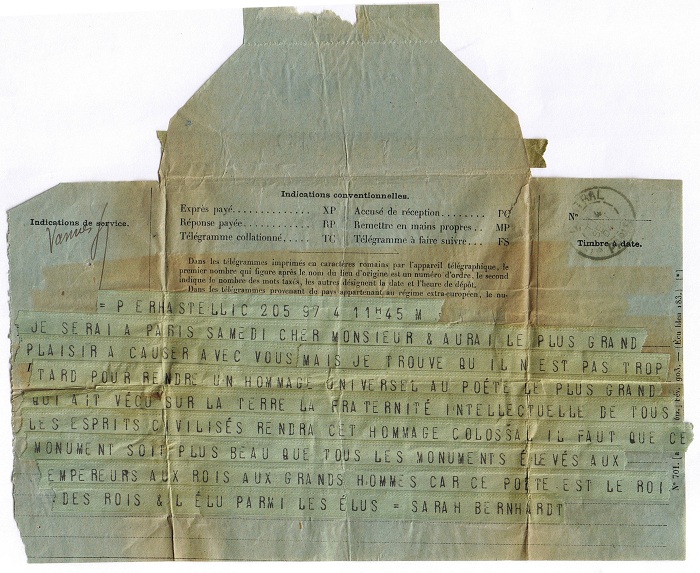 Indications conventionnelles.
Exprès payé............. XP Accusé de réception........ PC
Réponse payée........... RP Remettre en mains propres.. MP
Télégramme collationné... TC Télégramme à faire suivre... FS
Indications de service.
Vannes
N°
Timbre à date.
Dans les télégrammes imprimés en caractères romains par l'appareil télégraphique, le
premier nombre qui figure après le nom du lieu d'origine est un numéro d'ordre, le second
indique le nombre des mots taxés, les autres désignent la date et l'heure de dépôt.
Dans les télégrammes provenant du pays appartenant au régime extra-européen, le nu-
= P ERHASTELLIC 205 97 4 11H45 M
JE SERAI A PARIS SAMEDI CHER MONSIEUR & AURAI LE PLUS GRAND
PLAISIR A CAUSER AVEC VOUS MAIS JE TROUVE QU IL N EST PAS TROP
TARD POUR RENDRE UN HOMMAGE UNIVERSEL AU POÊTE LE PLUS GRAND
QUI AIT VÉCU SUR LA TERRE LA FRATERNITÉ INTELLECTUELLE DE TOUS
LES ESPRITS CIVILISÉS RENDRA CET HOMMAGE COLOSSAL IL FAUT QUE CE
MONUMENT SOIT PLUS BEAU QUE TOUS LES MONUMENTS ÉLEVÉS AUX
EMPEREURS AUX ROIS AUX GRANDS HOMMES CAR CE POÊTE EST LE ROI
DES ROIS & L ÉLU PARMI LES ÉLUS = SARAH BERNHARDT
N° 701.